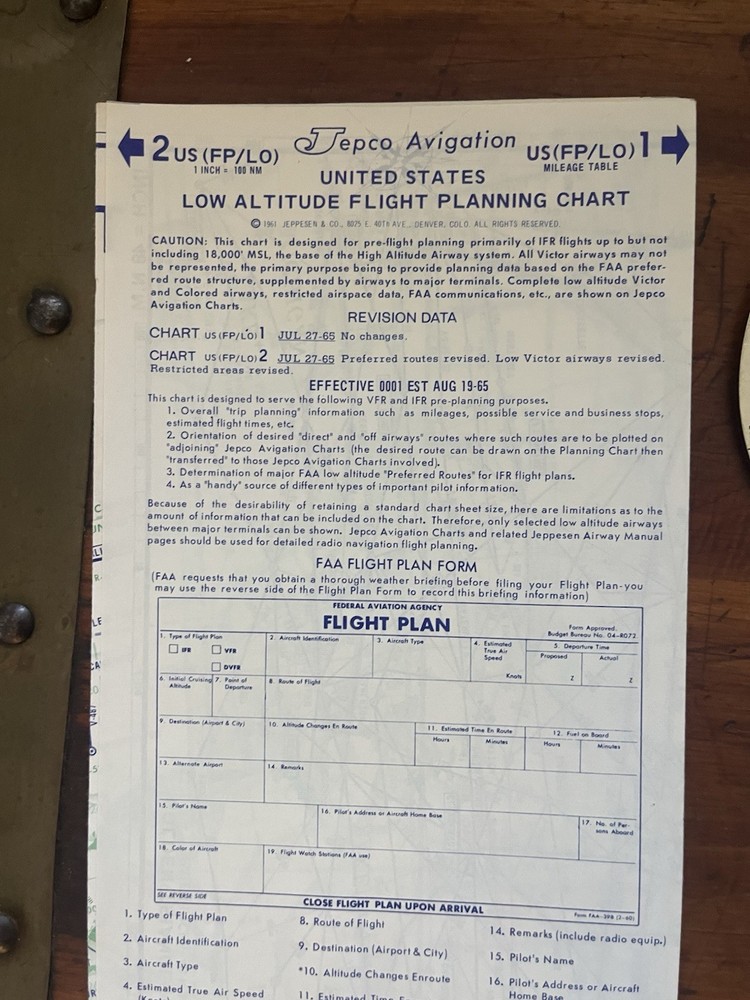 2 US (FP/LO)
1 INCH = 100 NM
Jepco Avigation
US(FP/LO) 1
MILEAGE TABLE
UNITED STATES
LOW ALTITUDE FLIGHT PLANNING CHART
© 1961 JEPPESEN & CO., 8025 E. 40TH AVE., DENVER, COLO. ALL RIGHTS RESERVED.
CAUTION: This chart is designed for pre-flight planning primarily of IFR flights up to but not
including 18,000' MSL, the base of the High Altitude Airway system. All Victor airways may not
be represented, the primary purpose being to provide planning data based on the FAA prefer-
red route structure, supplemented by airways to major terminals. Complete low altitude Victor
and Colored airways, restricted airspace data, FAA communications, etc., are shown on Jepco
Avigation Charts.
REVISION DATA
CHART US (FP/LO) 1 JUL 27-65 No changes.
CHART US (FP/LO) 2 JUL 27-65 Preferred routes revised. Low Victor airways revised.
Restricted areas revised.
EFFECTIVE 0001 EST AUG 19-65
This chart is designed to serve the following VFR and IFR pre-planning purposes.
1. Overall "trip planning" information such as mileages, possible service and business stops,
estimated flight times, etc.
2. Orientation of desired "direct" and "off airways" routes where such routes are to be plotted on
"adjoining" Jepco Avigation Charts (the desired route can be drawn on the Planning Chart then
"transferred" to those Jepco Avigation Charts involved).
3. Determination of major FAA low altitude "Preferred Routes" for IFR flight plans.
4. As a "handy" source of different types of important pilot information.
Because of the desirability of retaining a standard chart sheet size, there are limitations as to the
amount of information that can be included on the chart. Therefore, only selected low altitude airways
between major terminals can be shown. Jepco Avigation Charts and related Jeppesen Airway Manual
pages should be used for detailed radio navigation flight planning.
FAA FLIGHT PLAN FORM
(FAA requests that you obtain a thorough weather briefing before filing your Flight Plan-you
may use the reverse side of the Flight Plan Form to record this briefing information)
FEDERAL AVIATION AGENCY
FLIGHT PLAN
Form Approved.
Budget Bureau No. 04-R072.
1. Type of Flight Plan
IFR
VFR
DVFR
2. Aircraft Identification
3. Aircraft Type
4. Estimated
True Air
Speed
Knots
5. Departure Time
Proposed
Z
Actual
Z
6. Initial Cruising
Altitude
7. Point of
Departure
8. Route of Flight
9. Destination (Airport & City)
10. Altitude Changes En Route
11. Estimated Time En Route
Hours
Minutes
12. Fuel on Board
Hours
Minutes
13. Alternate Airport
14. Remarks
15. Pilot's Name
16. Pilot's Address or Aircraft Home Base
17. No. of Per-
sons Aboard
18. Color of Aircraft
19. Flight Watch Stations (FAA use)
SEE REVERSE SIDE
CLOSE FLIGHT PLAN UPON ARRIVAL
Form FAA-398 (2-60)
1. Type of Flight Plan
2. Aircraft Identification
3. Aircraft Type
4. Estimated True Air Speed
8. Route of Flight
9. Destination (Airport & City)
*10. Altitude Changes Enroute
11. Estimated Time
14. Remarks (include radio equip.)
15. Pilot's Name
16. Pilot's Address or Aircraft
Home Base